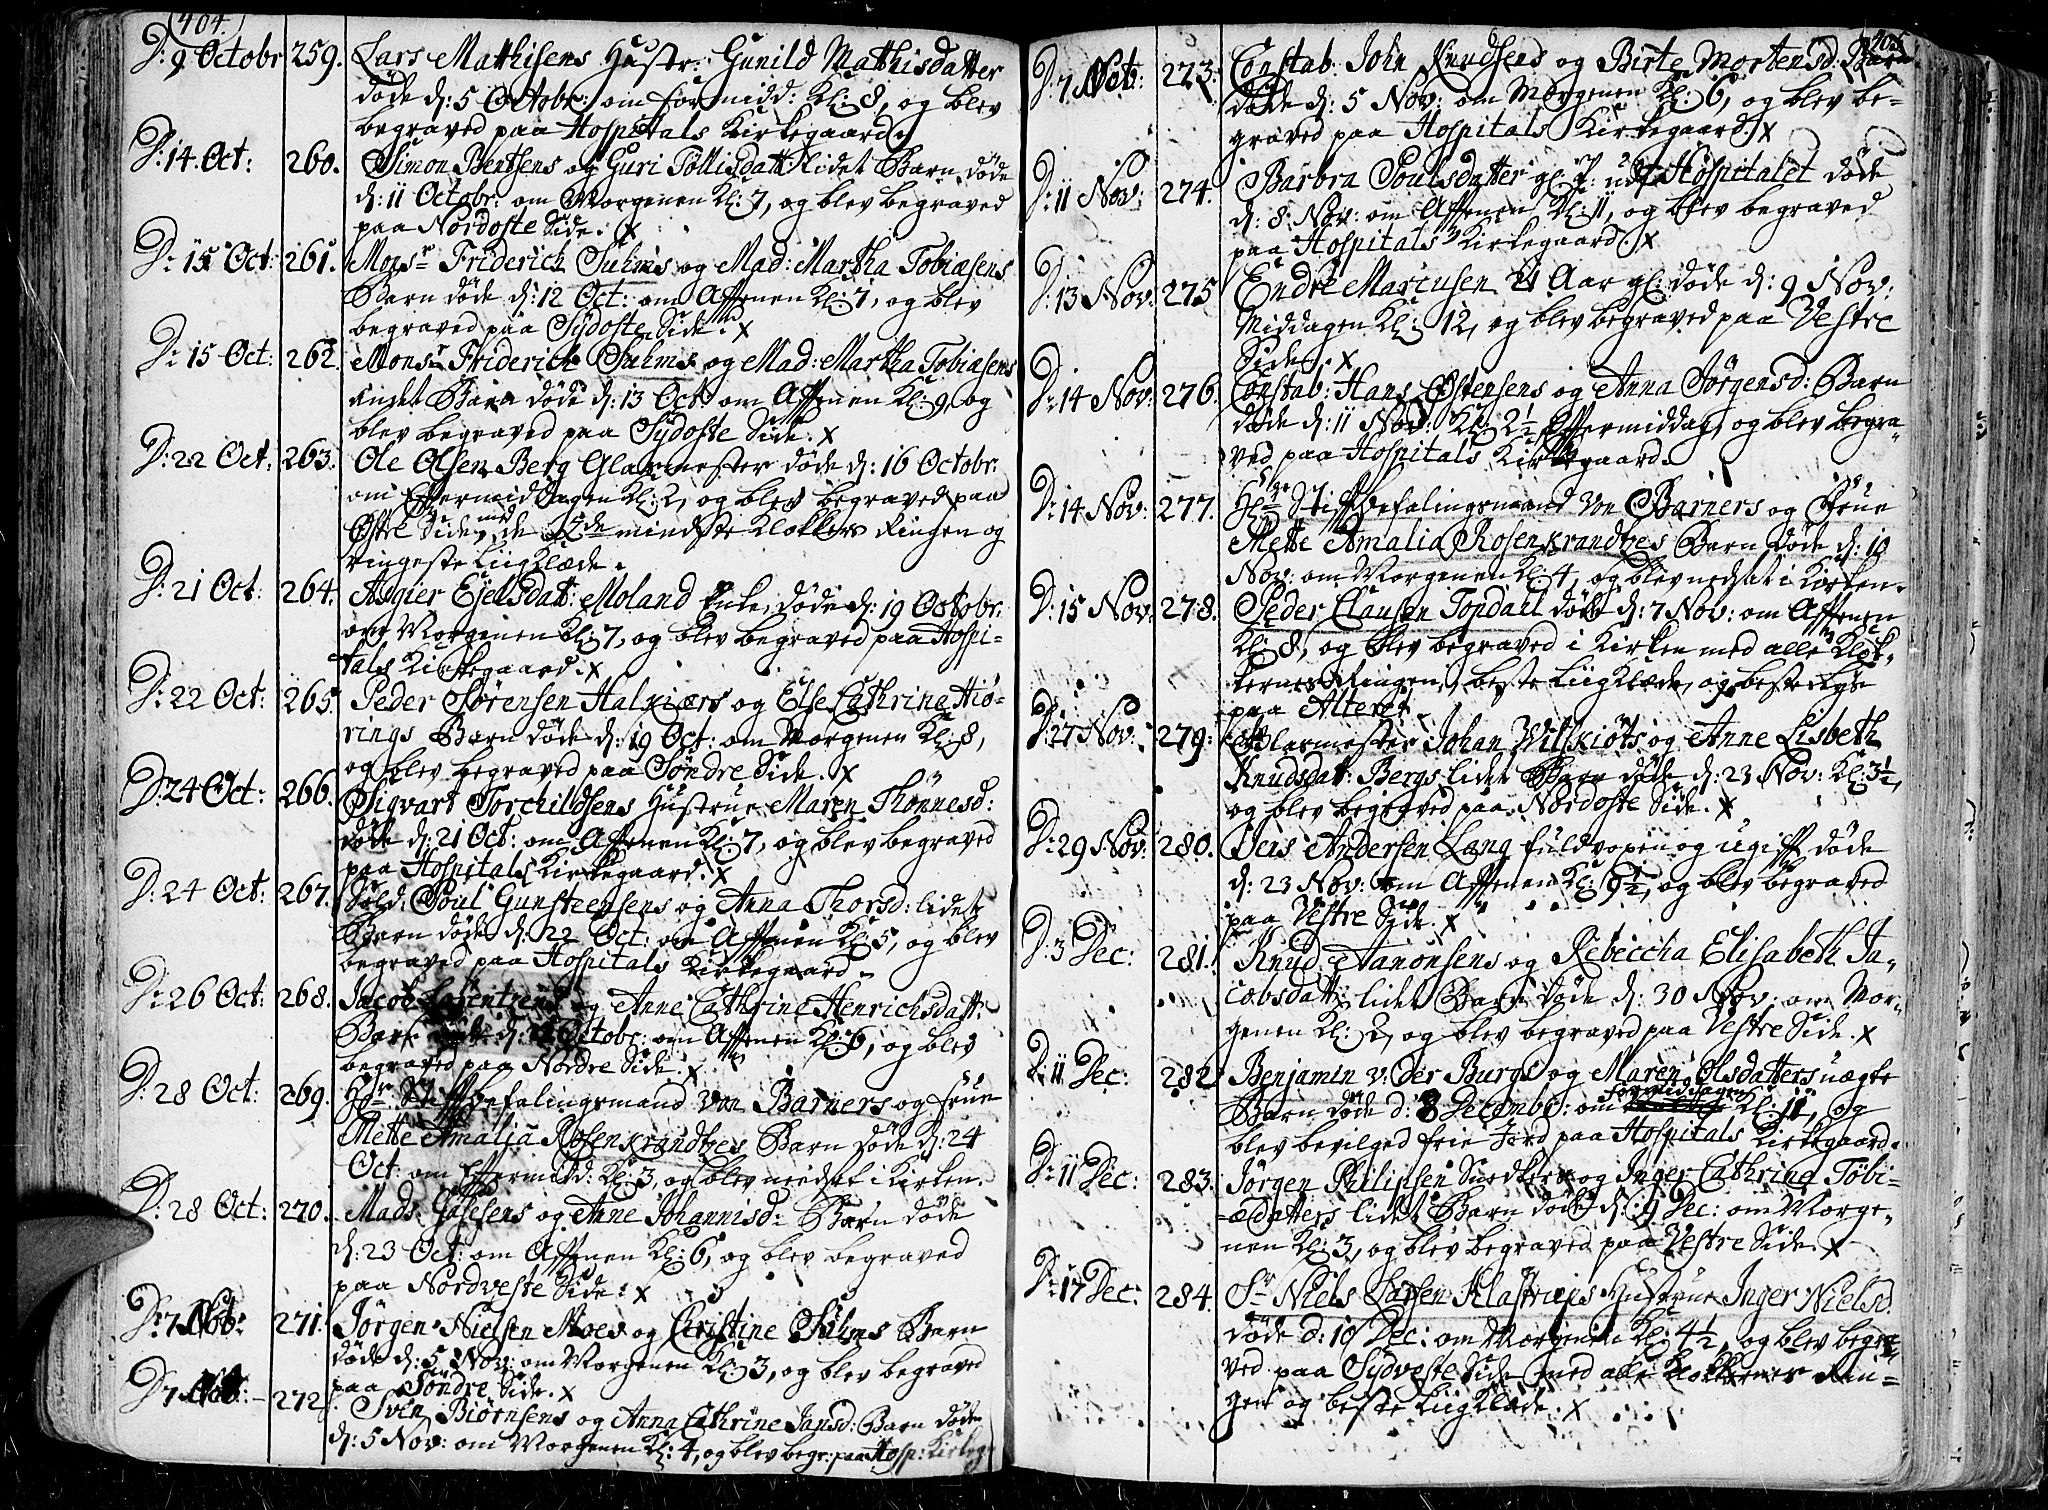 404.
D: 9 Octobr 259. Lars Mathisens Hustr: Gunild Mathisdatter
døde d: 5 Octobr: om formidd: Kl: 8, og blev
begraved paa Hospitals Kirkegaard.
D: 14. Oct: 260. Simon Bentsens og Guri Tøllisdatt lidet Barn døde
d: 11 Octobr: om Morgenen Kl: 7, og blev begraved
paa Nordoste Side. x
D: 15 Oct: 261. Monsr Friderich Suhms og Mad: Martha Tobiasens
Barn døde d: 12 Oct: om Afftenen Kl: 7, og blev
begraved paa Sydoste Side. x
D: 15 Oct: 262. Monsr Friderich Suhms og Mad: Martha Tobiasens
andet Barn døde d: 13 Oct: om Afftenen Kl: 9, og
blev begraved paa Sydoste Side. x
D: 22 Oct: 263. Ole Olsen Berg Glarmester døde d: 16 Octobr:
om Efftermiddagen Kl: 2, og blev begraved paa
Østre Side, med de mindste Klokkers Ringen og
ringeste Liigklæde.
D: 21 Oct: 264. Asgier Ejelsdatt: Moland Enke, døde d: 19 Octobr:
om Morgenen Kl: 7, og blev begraved paa Hospi-
tals Kirkegaard. x
D: 22 Oct: 265. Peder Sørensen Halkiærs og Else Cathrine Hiø-
rings Barn døde d: 19 Oct: om Morgenen Kl: 8,
og blev begraved paa Søndre Side. x
D: 24 Oct: 266. Sigvart Torchildsens Hustrue Maren Thønnesd:
døde d: 21 Oct: om Afftenen Kl: 7, og blev begraved
paa Hospitals Kirkegaard. x
D: 24 Oct: 267. Sold: Poul Gunsteensens og Anna Thorsd: lidet
Barn døde d: 22 Oct: om Afftenen Kl: 5, og blev
begraved paa Hospitals Kirkegaard.
D: 26 Oct: 268. Jacob Lorentzens og Anne Cathrine Henrichsdatt:
Barn døde d: Octobr: om Afftenen Kl: 6, og blev
begraved paa Nordre Side. x
D: 28 Oct: 269. Hr: Stifftbefalingsmand von Barners og frue
Mette Amalia Rosenkrandtzes Barn døde d: 24
Oct: om Efftermidd: Kl: 3, og blev nedsat i Kirken.
D: 28 Oct: 270. Mads og Anne Johannisd: Barn døde
d: 23 Oct: om Afftenen Kl: 6, og blev begraved
paa Nordveste Side. x
D: 7 Nov: 271. Jørgen Nielsen Moes og Christine Suhms Barn
døde d: 5 Nov: om Morgenen Kl: 3, og blev begraved
paa Søndre Side. x
D: 7 Nov: 272. Sven Biørnsens og Anna Cathrine Jansd: Barn døde
d: 5 Nov: om Morgenen Kl: 4, og blev begr: paa Hosp: Kirkeg
405.
D: 7 Nov: 273. Constab: John Knudsens og Birte Mortensd: Barn
døde d: 5 Nov: om Morgenen Kl: 6, og blev be-
graved paa Hospitals Kirkegaard. x
D: 11 Nov: 274. Barbra Poulsdatter gl. P: udi Hospitalet døde
d: 8 Nov: om Afftenen Kl: 11, og blev begraved
paa Hospitals Kirkegaard. x
D: 13 Nov: 275 Endre Mariusen 21 Aar gl: døde d: 9 Nov:
Middagen Kl: 12, og blev begraved paa Vestre
Side. x
D: 14 Nov: 276. Constab: Hans Østensens og Anna Jørgensd: Barn
døde d: 11 Nov: Kl: 2½ Efftermiddag, og blev begra-
ved paa Hospitals Kirkegaard.
D: 14 Nov: 277. Hr: Stifftbefalingsmand von Barners og Frue
Mette Amalia Rosenkrandtzes Barn døde d: 10
Nov: om Morgenen Kl: 4, og blev nedsat i Kirken.
D: 15 Nov: 278. Peder Clausen Tondall døde d: 7 Nov: om Afftenen
Kl: 8, og blev begraved i Kirken med alle Klok-
kernes Ringen, beste Liigklæde, og beste Lyse
paa Alteret.
D: 27 Nov: 279. Glarmester Johan Willkiøts og Anne Lisbeth
Knudsdat: Bergs lidet Barn døde d: 23 Nov: Kl: 3½,
og blev begraved paa Nordoste Side. x
D: 29 Nov: 280. Jens Andersen Lang fuldvoxen og ugifft døde
d: 23 Nov: om Afftenen Kl: 9½, og blev begraved
paa Vestre Side. x
D: 3 Dec: 281. Knud Aanonsens og Rebeccha Elisabeth Ja-
cobsdatt: lidet Barn døde d: 30 Nov: om Mor-
genen Kl: 2, og blev begraved paa Vestre Side. x
D: 11 Dec: 282 Benjamin v: der Burgs og Maren Olsdatters uægte
Barn døde d: 8 Decembr: om formiddagen Kl: 11, og
blev bevilged frie Jord paa Hospitals Kirkegaard.
D: 11 Dec: 283. Jørgen Philipsen Snedkers og Inger Cathrine Tobi-
-æDatters lidet Barn døde d: 9 Dec: om Morge-
nen Kl: 3, og blev begraved paa Vestre Side. x
D: 17 Dec: 284. Sr Niels Japsen Klastrups Hustrue Inger Nielsd.
døde d: 10 Dec: om Morgenen Kl: 4½, og blev begra-
ved paa Sydveste Side med alle Klokkernes Rin-
gen og beste Liigklæde. x